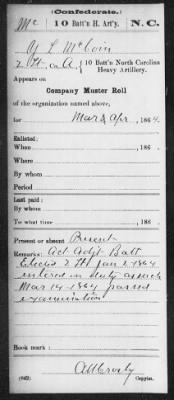 (Confederate.)
Mc 10 Batt'n H. Art'y. N. C.
Y L McCoin
2 Lt. Co A, 10 Batt'n North Carolina
Heavy Artillery.
Appears on
Company Muster Roll
of the organization named above,
for Mar & Apr, 186 4.
Enlisted:
When , 186 .
Where
By whom
Period
Last paid:
By whom
To what time , 186 .
Present or absent Present
Remarks: Act Adjt Batt
Elected 2 Lt Jan 2 1864
entered on duty as such
Mar 14 1864 passed
examination
Book mark:
(642) Copyist.